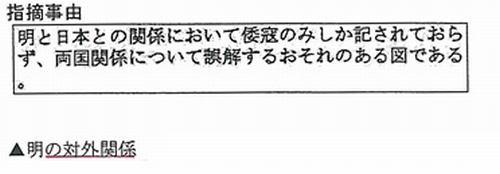 指摘事由
明と日本との関係において倭寇のみしか記されておら
ず、両国関係について誤解するおそれのある図である
。
▲明の対外関係